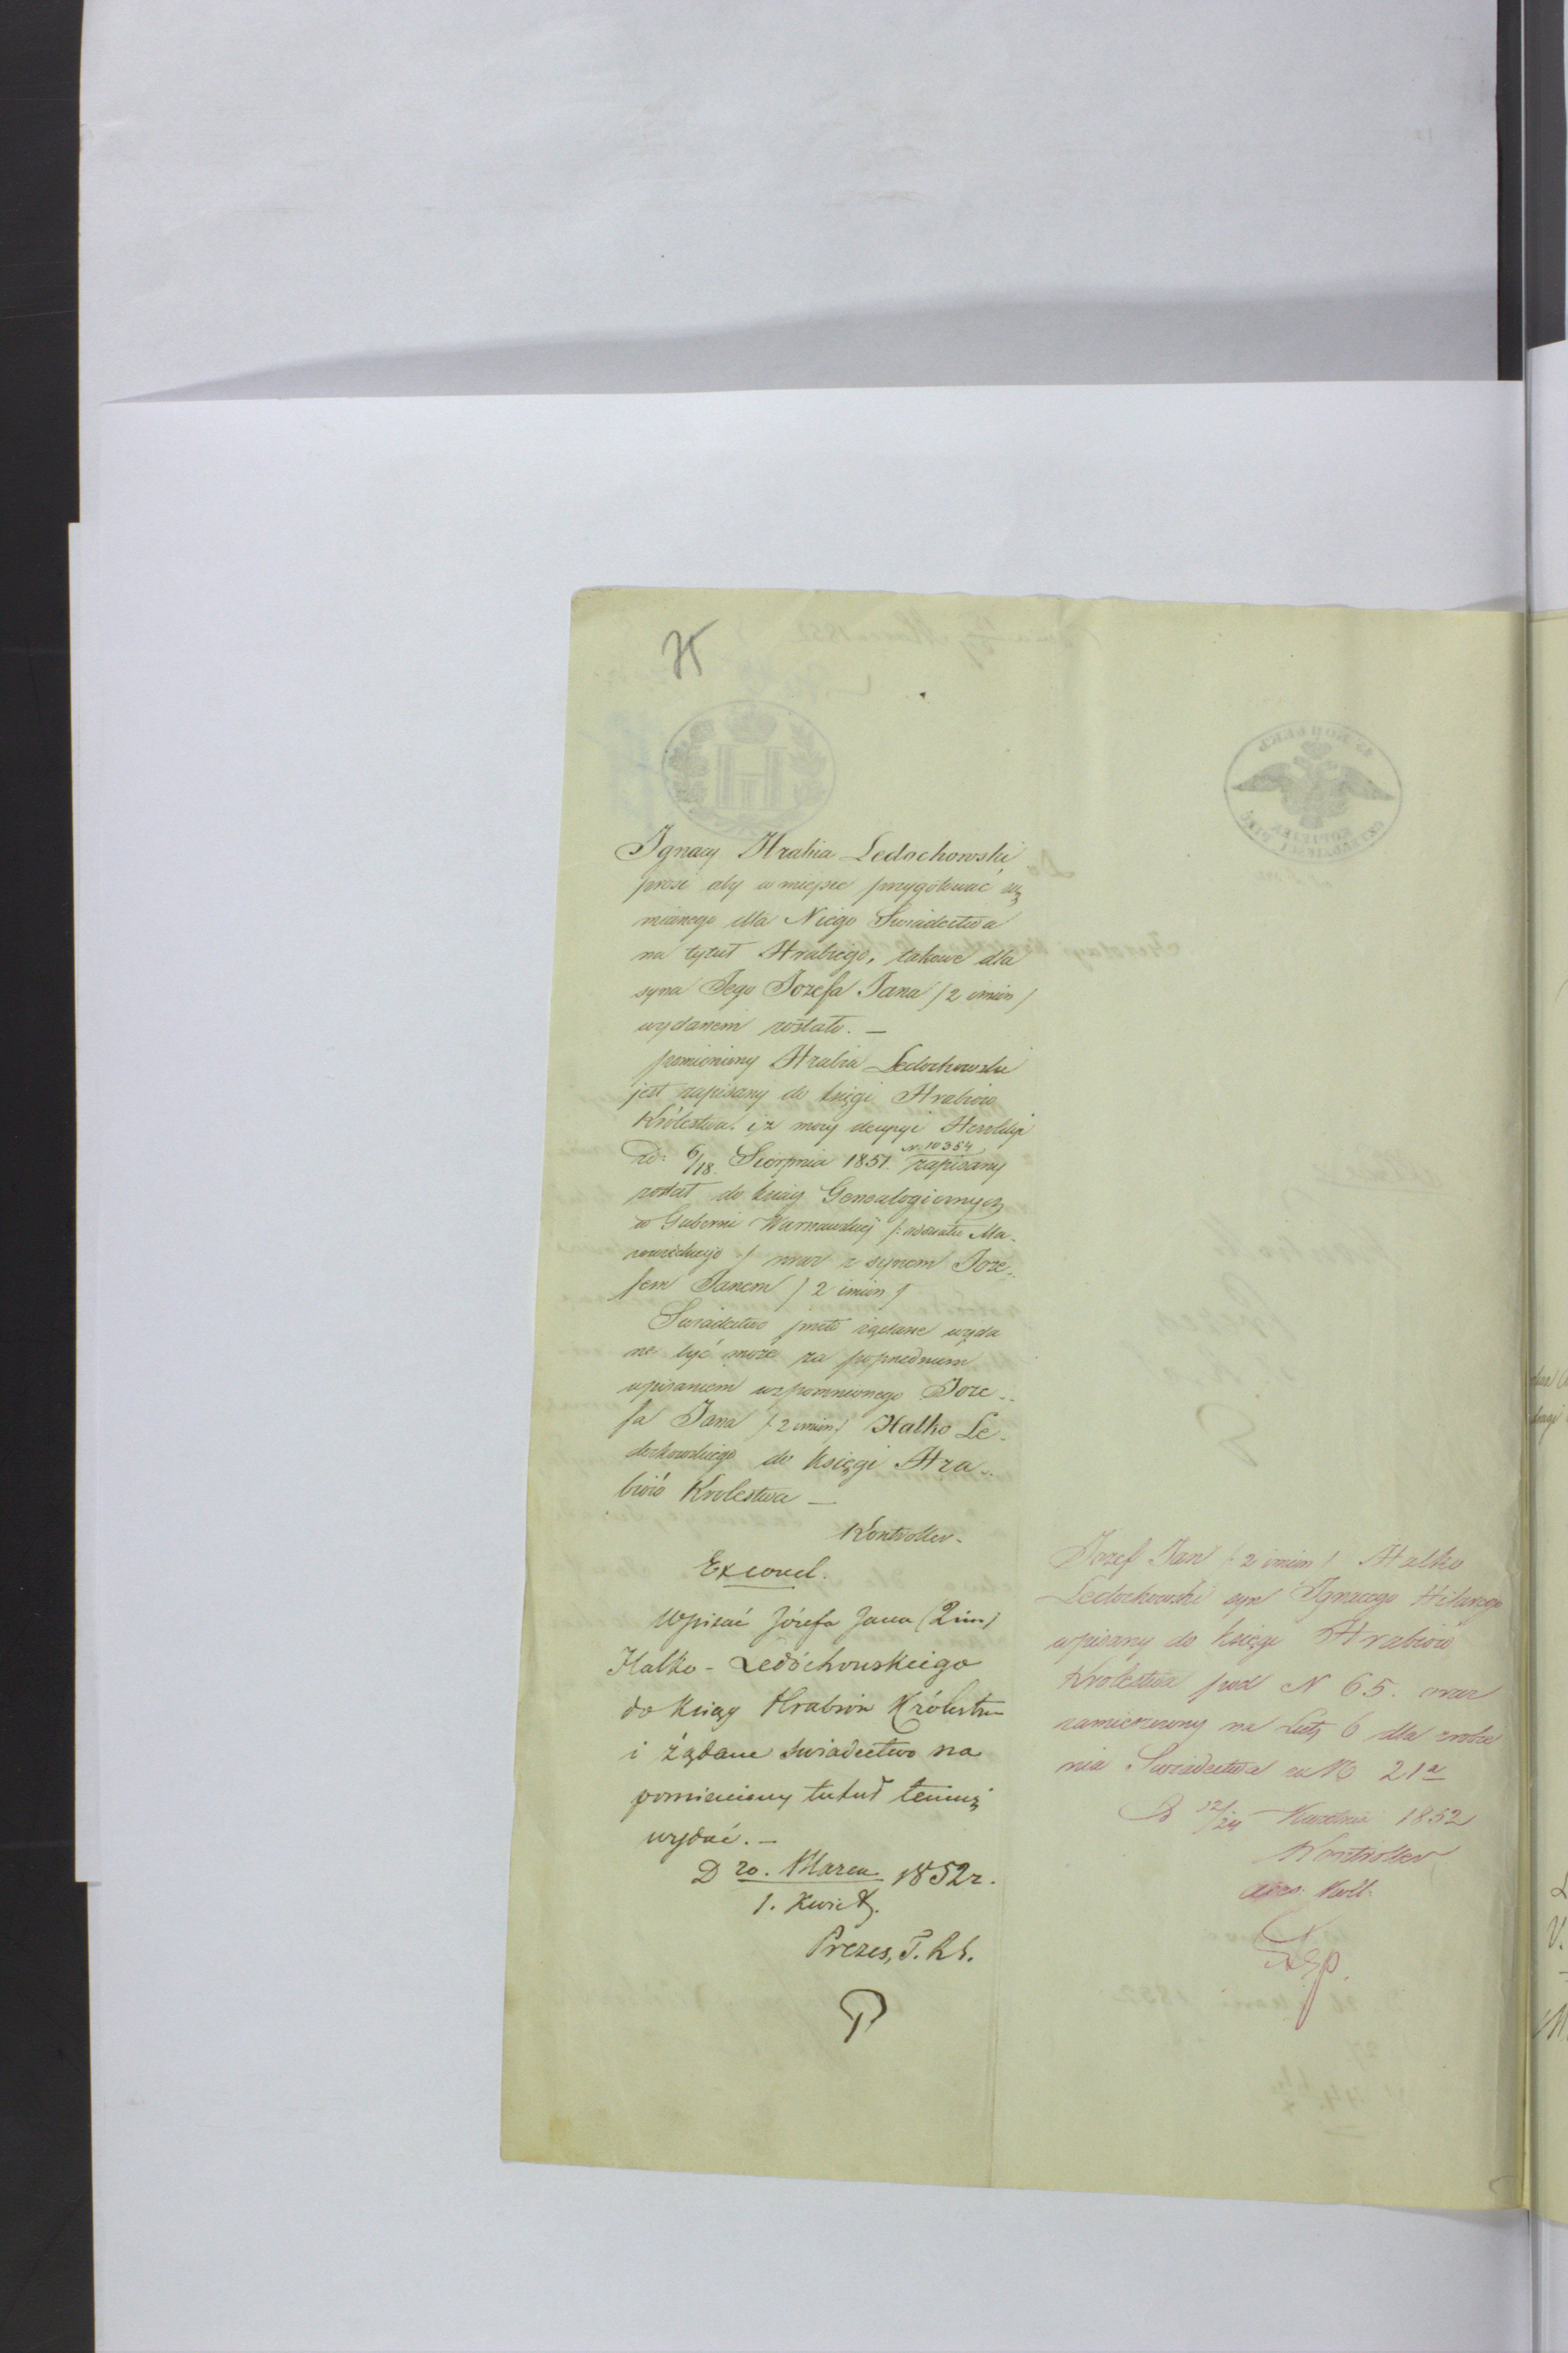 Ignacy Hrabia Ledochowski
prosi aby w miejsce przygotować się
mianego dla Niego Swiadectwa
na tytuł Hrabiego, takowe dla
syna Jego Jozefa Jana /2 imion/
wydanem zostało. —
pomieniony Hrabia Ledochowski
jest zapisany do księgi Hrabiów
Królestwa. i z mocy decyzyi Heroldyi
zd: 6/18. Sierpnia 1851. N. 10354 zapisany
został do ksiąg Genealogicznych
w Gubernii Warszawskiej
wraz z synem Joze-
fem Janem / 2 imion /
Swiadectwo przeto żądane wyda
ne być może za poprzedniem
wpisaniem wspomnionego Joze-
fa Jana /: 2 imion / Halko Le-
dochowskiego do Księgi Hra-
biów Krolestwa —
Kontroller.
Wpisać Józefa Jana (2 im)
Halko - Ledóchowskiego
do Ksiąg Hrabiów Królestwa
i żądane swiadectwo na
pomieniony tytuł temuż
wydać. —
D 20. Marca 1852 r.
1. Kwiet.
Prezes, T. R. S.
Jozef Jan /: 2 imion / Halko
Ledochowski syn Ignacego Hilarego
wpisany do księgi Hrabiów
Krolestwa pod N 65. oraz
zamieszczony na Listę 6 dla zrobie
nia Swiadectwa za N 21
D 12/24 Kwietnia 1852
Kontroller
45 КОПѢЕКЪ
CZTERDZIEŚCI PIĘĆ KOPIEJEK